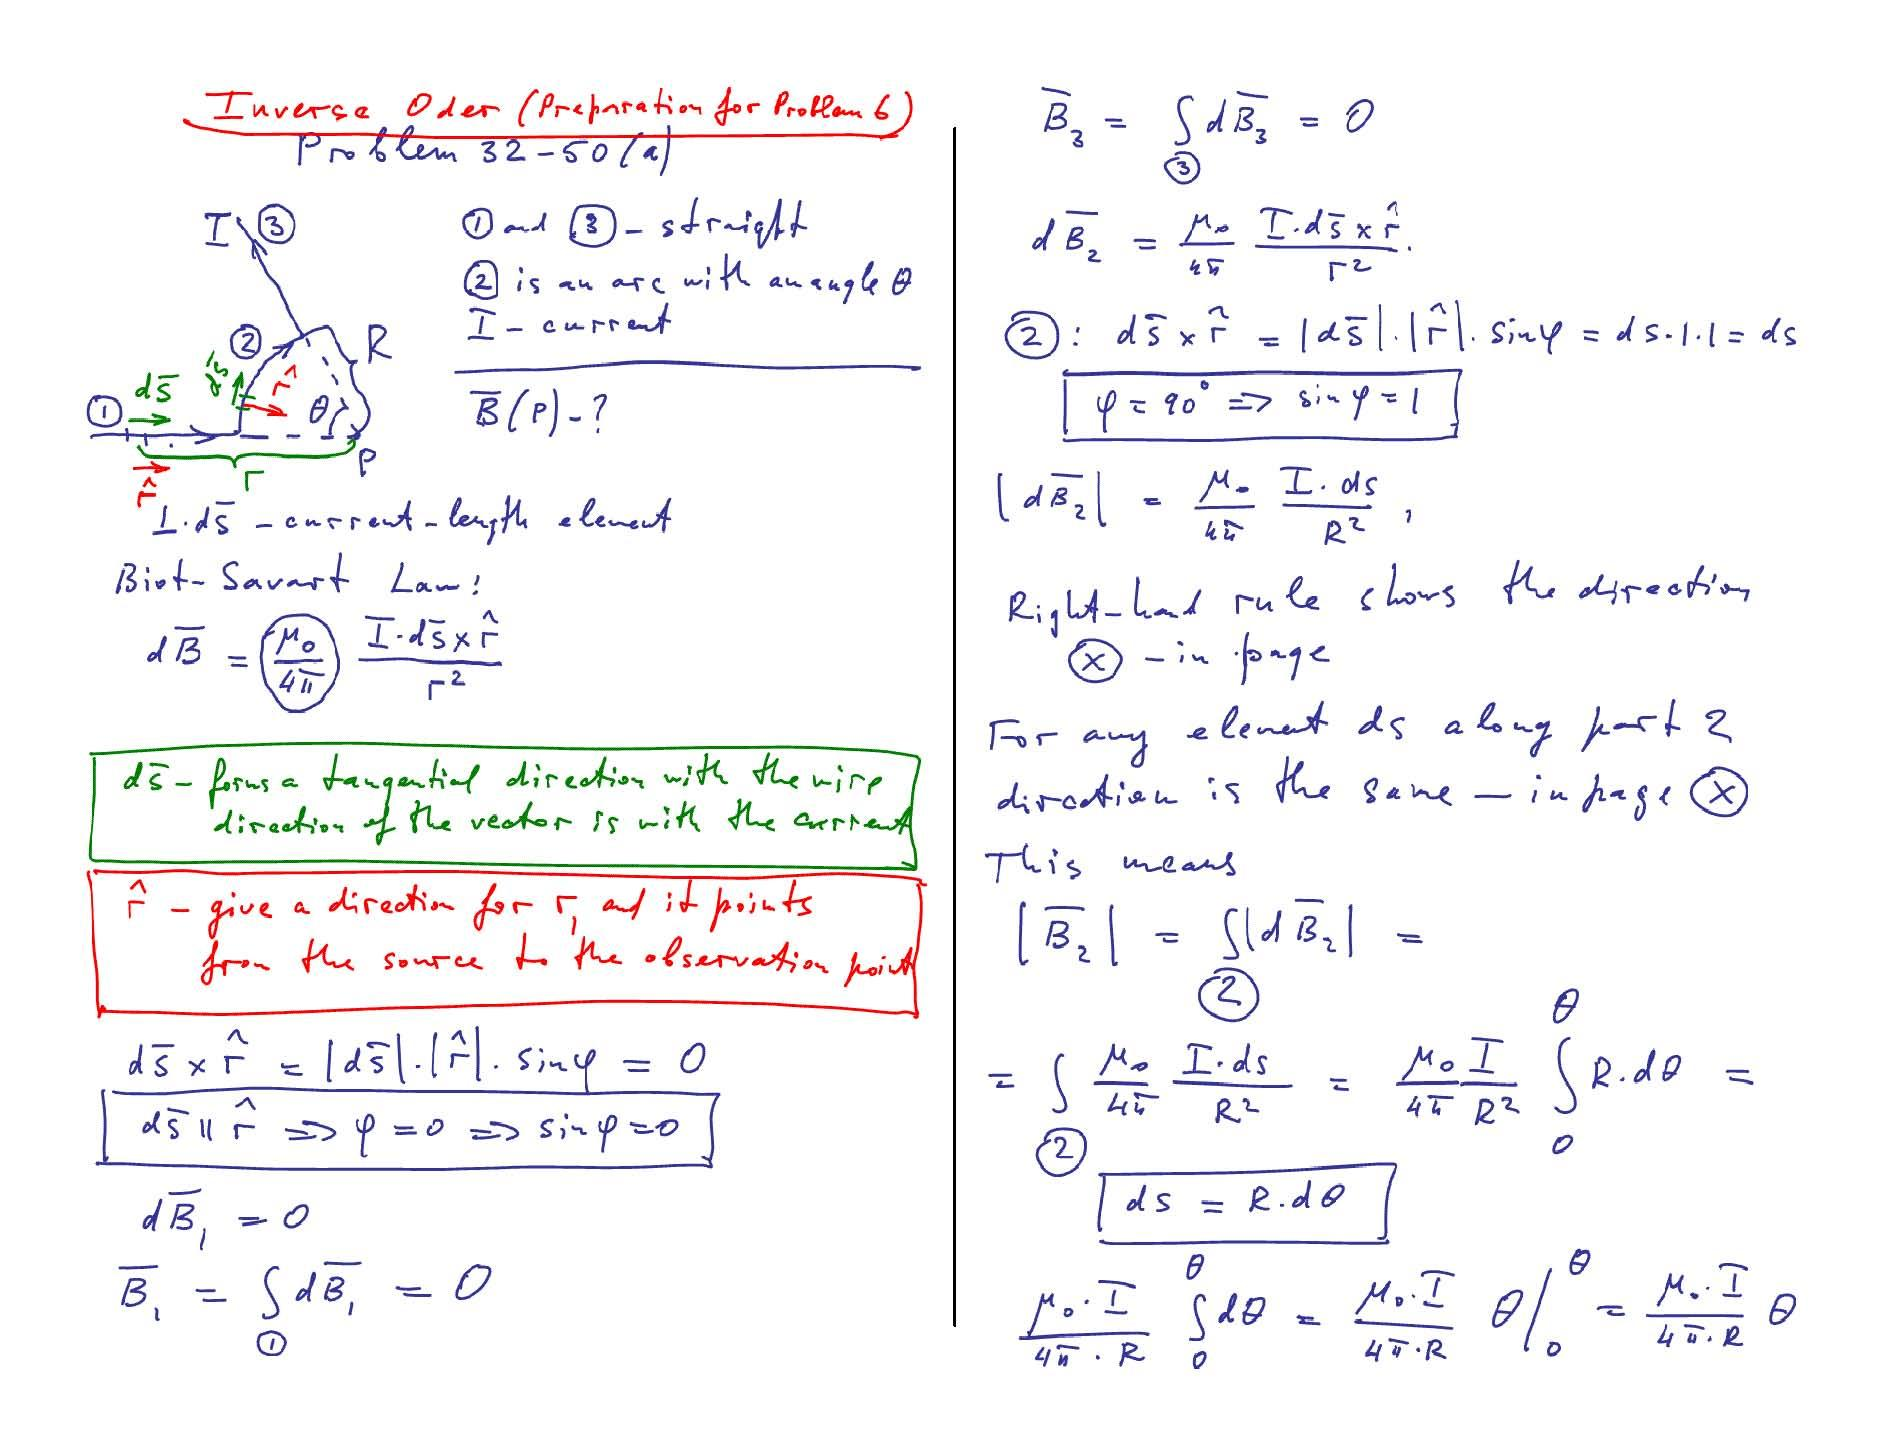 Inverse Oder (Preparation for Problem 6)
Problem 32-50(a)
I ③
② R
ds̄ ds̄ r̂ θ
①
P
r̂ r
① and ③ - straight
② is an arc with an angle θ
I - current
B̄(P) - ?
I·ds̄ - current-length element
Biot-Savart Law:
dB̄ = μ₀/4π I·ds̄ × r̂ / r²
ds̄ - forms a tangential direction with the wire
direction of the vector is with the current
r̂ - give a direction for r, and it points
from the source to the observation point
ds̄ × r̂ = |ds̄|·|r̂|·sinφ = 0
ds̄ || r̂ => φ = 0 => sinφ = 0
dB̄₁ = 0
B̄₁ = ∫① dB̄₁ = 0
B̄₃ = ∫③ dB̄₃ = 0
dB̄₂ = μ₀/4π I·ds̄ × r̂ / r².
②: ds̄ × r̂ = |ds̄|·|r̂|·sinφ = ds·1·1 = ds
φ = 90° => sinφ = 1
|dB̄₂| = μ₀/4π I·ds / R²,
Right-hand rule shows the direction
ⓧ - in page
For any element ds along part 2
direction is the same - in page ⓧ
This means
|B̄₂| = ∫② |dB̄₂| =
= ∫② μ₀/4π I·ds/R² = μ₀/4π I/R² ∫₀^θ R·dθ =
ds = R·dθ
μ₀·I/4π·R ∫₀^θ dθ = μ₀·I/4π·R θ|₀^θ = μ₀·I/4π·R θ